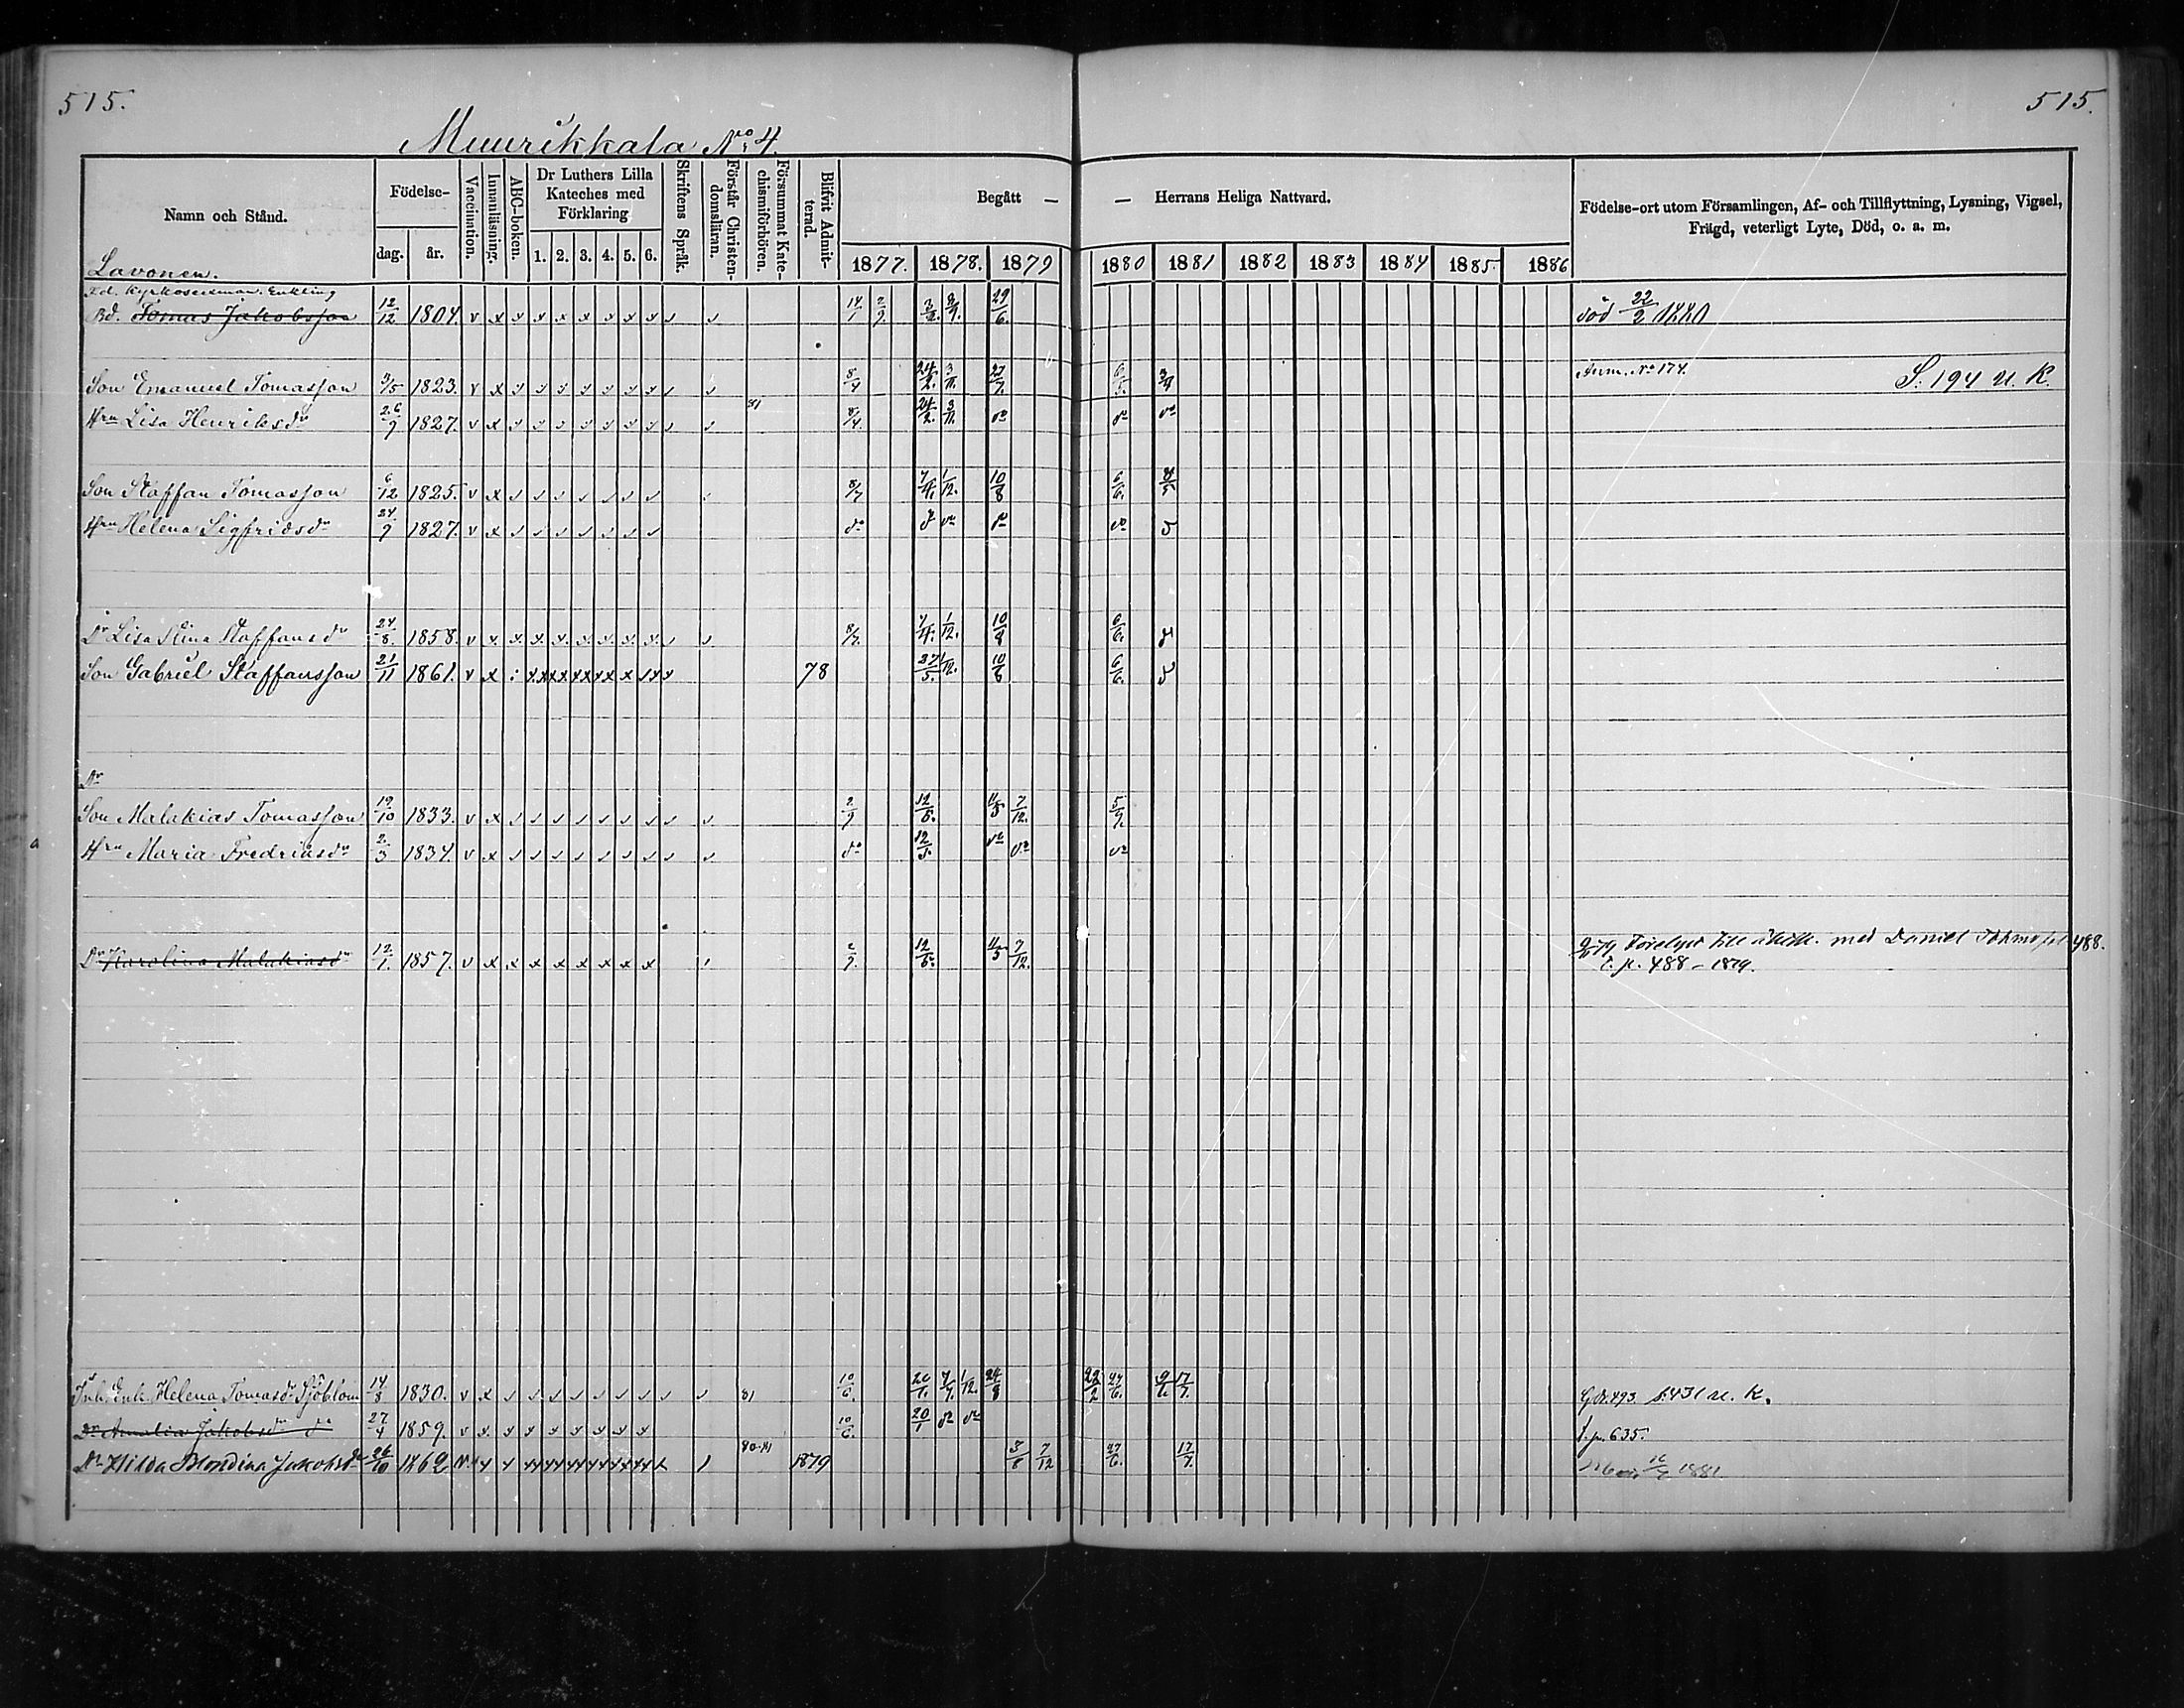 515.
515.
Muurikkala No 4.
Namn och Stånd.
Födelse-
dag. år.
Vaccination.
Innanläsning.
ABC-boken.
Dr Luthers Lilla Kateches med Förklaring
1. 2. 3. 4. 5. 6.
Skriftens Språk.
Förstår Christen-domsläran.
Försummat Kate-chismiförhören.
Blifvit Admit-terad.
Begått — — Herrans Heliga Nattvard.
1877. 1878. 1879 1880 1881 1882 1883 1884 1885. 1886
Födelse-ort utom Församlingen, Af- och Tillflyttning, Lysning, Vigsel,
Frägd, veterligt Lyte, Död, o. a. m.
Lavonen.
Fd. Kyrkosexman. Enkling
Bd. Tomas Jakobsson 12/12 1804. 14/1 2/9. 29/6. död 22/2 1880
Son Emanuel Tomasson 3/5 1823. 8/4 24/2. 3/11. 27/7. 6/5. Anm. No 174. S. 194 u. K.
Hru Lisa Henriksdr 26/9 1827. 81 8/4. 24/2. 3/11. do do do
Son Staffan Tomasson 6/12 1825. 8/7 7/4. 1/12. 10/8 6/6. 4/5
Hru Helena Sigfridsdr 24/9 1827. do do do do
Dr Lisa Stina Staffansdr 24/8 1858. 8/7. 7/4. 1/12. 10/8 6/6.
Son Gabriel Staffansson 21/11 1861. 78 27/5. 1/12. 10/8 6/6.
Dr
Son Malakias Tomasson 19/10 1833. 2/9 12/5. 7/12. 5/9.
Hru Maria Fredriksdr 2/3 1834. do 12/5. do do do
Dr Karolina Malakiasdr 12/1. 1857. 2/9. 12/5. 7/12. med Daniel 488.
t. p. 488 – 1879.
Inh. Enk. Helena Tomasdr Sjöblom 14/8 1830. 81 10/6. 20/1. 7/7. 1/12. 24/8 22/2 27/6. 17/7. s. 431 u. K.
Dr Amalia Jakobsdr do 27/4 1859. 10/6. 20/1 do do t. p. 635.
Dr Hilda Blondina Jakobsdr 26/10 1862 80-81 1879 3/8 7/12 27/6. 17/7. 1881